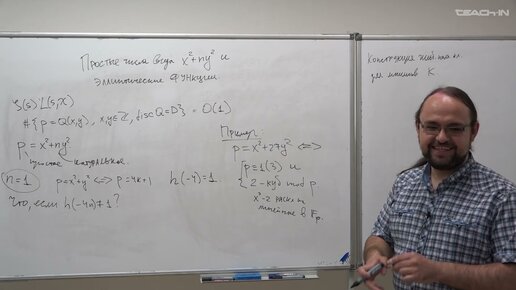 TEACH-IN
Простые числа вида x²+ny² и
эллиптические функции.
ζ(s) L(s,χ)
#{p=Q(x,y), x,y∈ℤ, disc Q=D} = O(1)
p = x²+ny²
n=1 p=x²+y² ⟺ p=4k+1 h(-4)=1.
Что, если h(-4n)≠1?
Пример:
p=x²+27y² ⟺
{ p≡1(3) и
2-куб mod p
x³-2 раскл. на
линейные в 𝔽p.
Конструкция
для мнимых K.